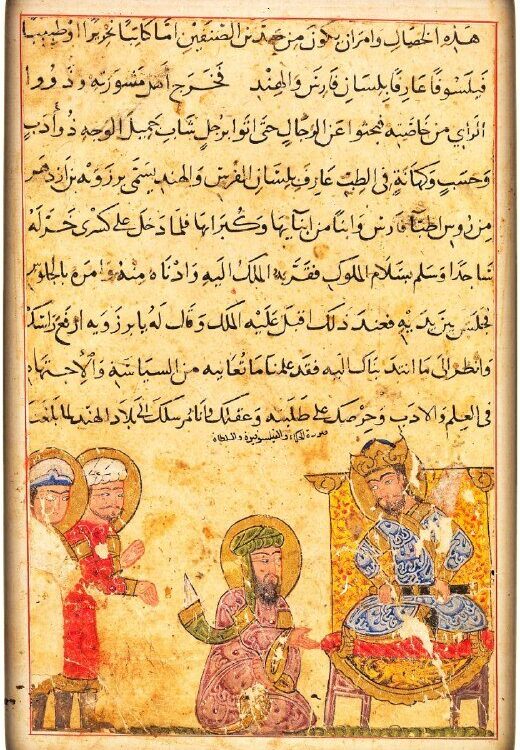 هذه الخصال وامر ان يكون من احد من الصنفين اما كاتبا نحريرا او طبيبا
فيلسوفا عارفا بلسان فارس والهند فخرج اهل مشورته وذووا
الراي من خاصته فبحثوا عن الرجال حتى اتوا برجل شاب جميل الوجه ذو أدب
وحسب وكهانة في الطب عارف بلسان الفرس والهند يسمى برزويه بن ازدهر
من روس اطبا فارس وابنا من ابنايها وكبرايها فلما دخل على كسرى خر له
ساجدا وسلم بسلام الملوك فقربه الملك اليه وادناه منه وامره بالجلوس
فجلس بين يديه فعند ذلك اقبل عليه الملك وقال له يا برزويه ارفع راسك
وانظر الى ما انتدبناك اليه فقد علمنا ما تعانيه من السياسة والاجتهاد
في العلم والادب وحرصك على طلبه وعقلك وانا مرسلك الى بلاد الهند لما بلغنا
صورة والفيلسوف